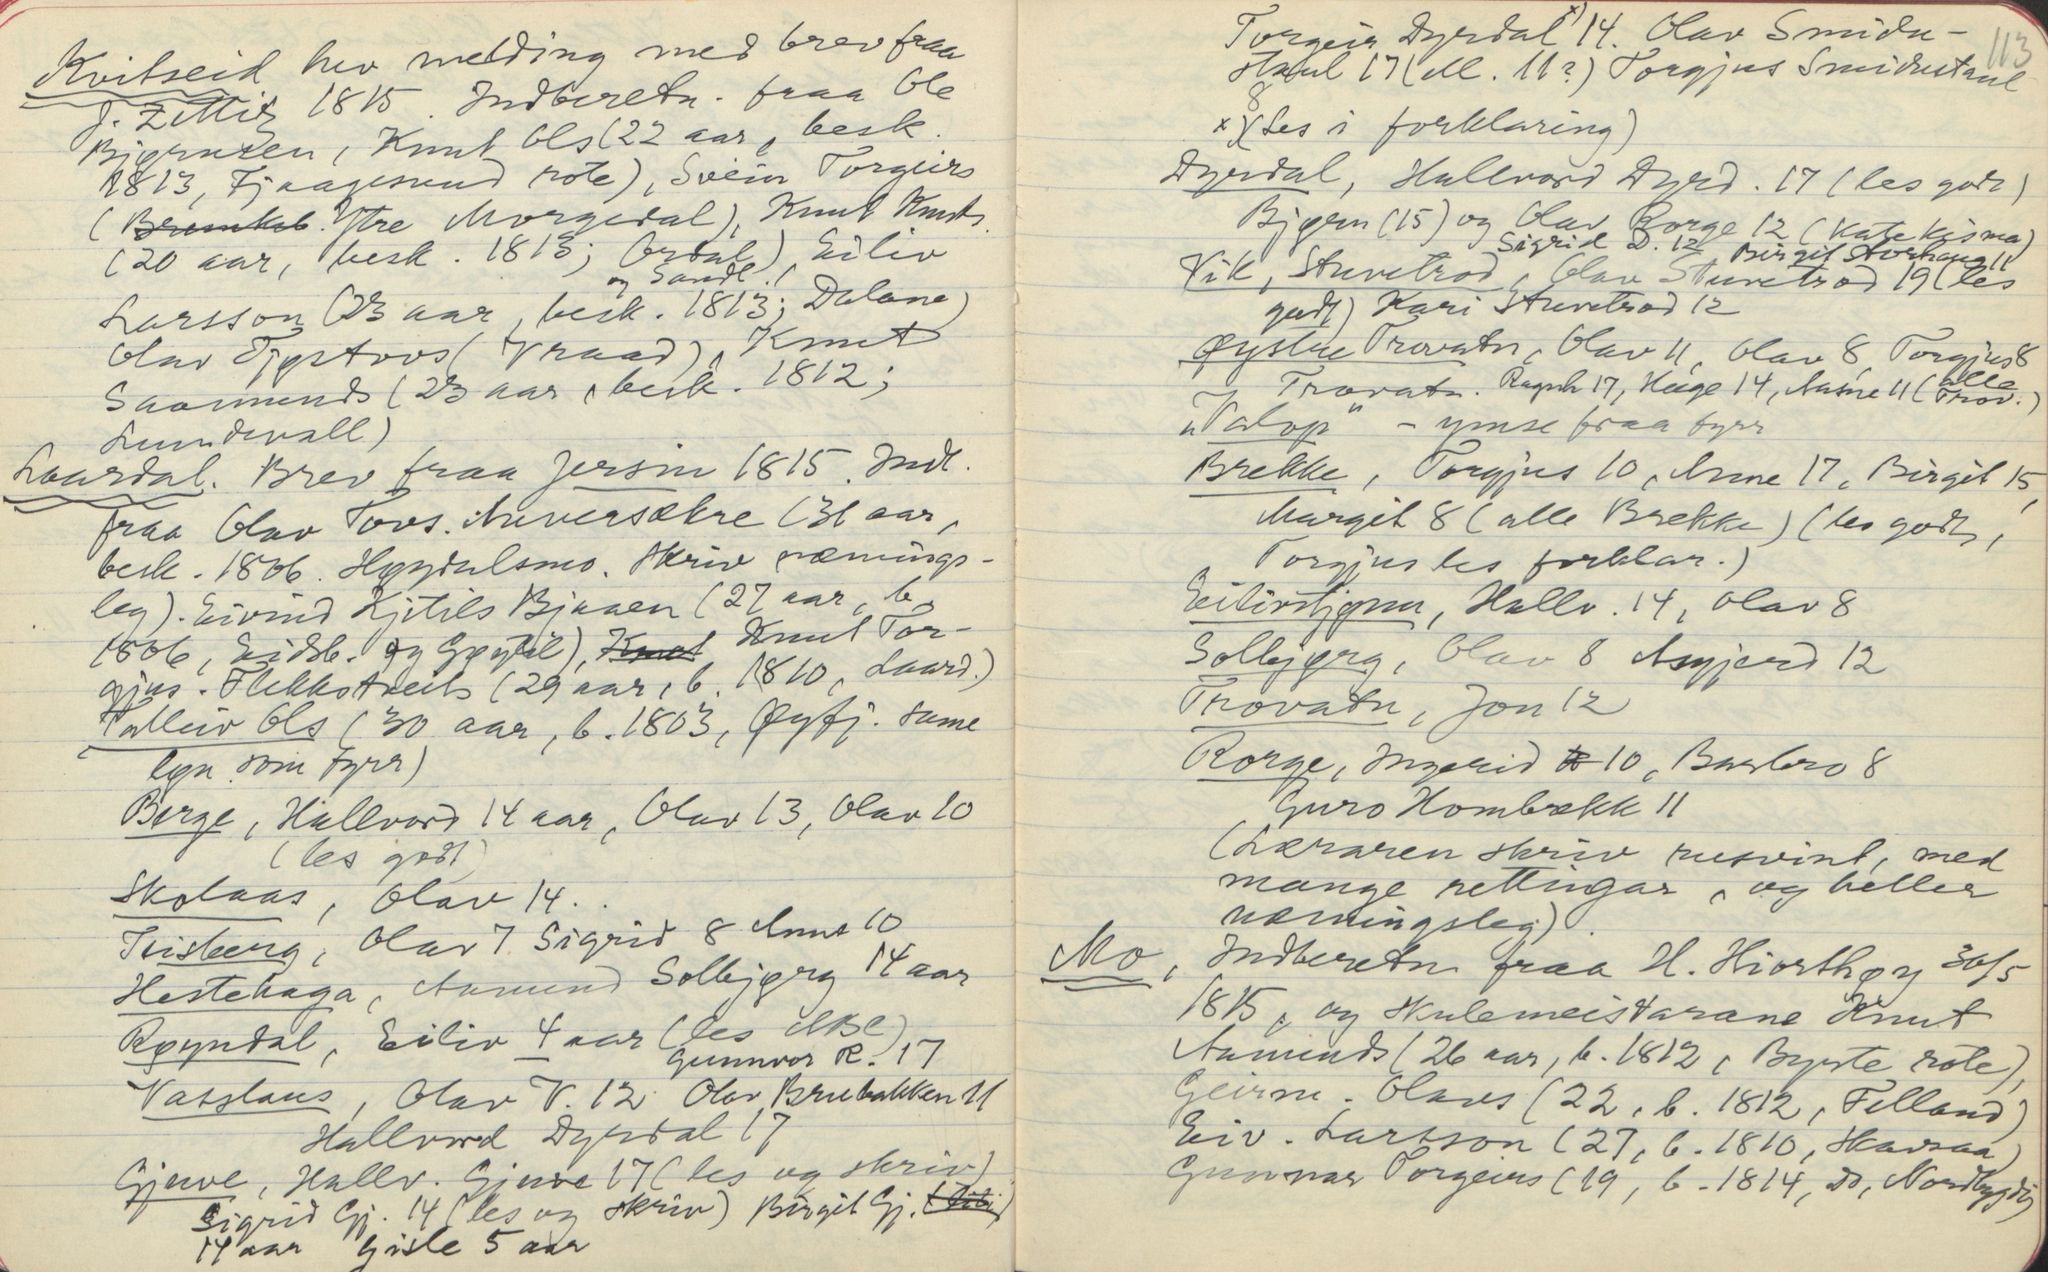 Kvitseid hev melding med brev fraa
J. Zittiz 1815. Indberetn. fraa Ole
Bjørnsen, Knut Ols (22 aar, besk.
1813, Fjaagesund rote), Svein Torgeirs
(Brunkeb. Ytre Morgedal), Knut Knuts.
(20 aar, besk. 1813; Ordal), Eiliv
og Sandl.
Larsson (23 aar, besk. 1813; Dalane)
Olav Tjøstovs (Vraad), Knut
Saamunds (23 aar, besk. 1812;
Lundevall)
Laardal. Brev fraa Jersin 1815. Indl.
fraa Olav Tovs. Auversækre (31 aar,
besk. 1806. Høydalsmo. Skriv næmings-
leg). Eivind Kjetils Bjaaen (27 aar, b.
1806, Eidsb. og Gøytil), Knut Knut Tor-
gjus. Flekkstveit (29 aar, b. 1810, Laard.)
Talleiv Ols (30 aar, b. 1803, Øyfj. same
lyn som fyrr)
Berge, Hallvord 14 aar, Olav 13, Olav 10
(les godt)
Skolaas, Olav 14.
Tvisberg, Olav 7 Sigrid 8 Anne 10
Hestehaga, Aamund Solbjørg 14 aar
Røyndal, Eiliv 4 aar (les ABC)
Gunnvor R. 17
Vasslaus, Olav V. 12 Olav Brubakken 11
Hallvord Dyrdal 17
Gjuve, Hallv. Gjuve 17 (les og skriv)
Sigrid Gj. 14 (les og skriv) Birgit Gj.
14 aar Gisle 5 aar
113
Torgeir Dyrdal x) 14. Olav Smidu-
staul 17 (M. 11?) Torgjus Smidustaul
8
x) (Les i forklaring)
Dyrdal, Hallvord Dyrd. 17 (les godt)
Bjørn (15) og Olav Rorge 12 (Katekisma)
Sigrid D. 12 Birgit Storhaug 11
Vik, Stuvetrod, Olav Stuvetrod 19 (les
godt) Kari Stuvetrod 12
Øystre Trovatn, Olav 11, Olav 8, Torgjus 8
Trovatn. Ragnh 17, Hæge 14, Aasne 11 (alle Trov.)
"Valop" - ymse fraa fyrr
Brekke, Torgjus 10, Anne 17, Birgit 15,
Margit 8 (alle Brekke) (les godt,
Torgjus les forklar.)
Eilivstjønn, Hallv. 14, Olav 8
Solbjørg, Olav 8 Asgjerd 12
Trovatn, Jon 12
Rorge, Ingerid 10, Barbro 8
Guro Hombækk 11
(Læraren skriv rusvint, med
mange rettingar, og heller
næmingsleg).
Mo, Indberetn fraa H. Hiorthøy 30/5
1815, og skulemeistarane Knut
Aamunds (26 aar, b. 1812, Byrte rote),
Geirm. Olavs (22, b. 1812, Felland)
Eiv. Larsson (27, b. 1810, Skavsaa)
Gunnar Torgeirs (19, b. 1814, Do, Nordbygdi)